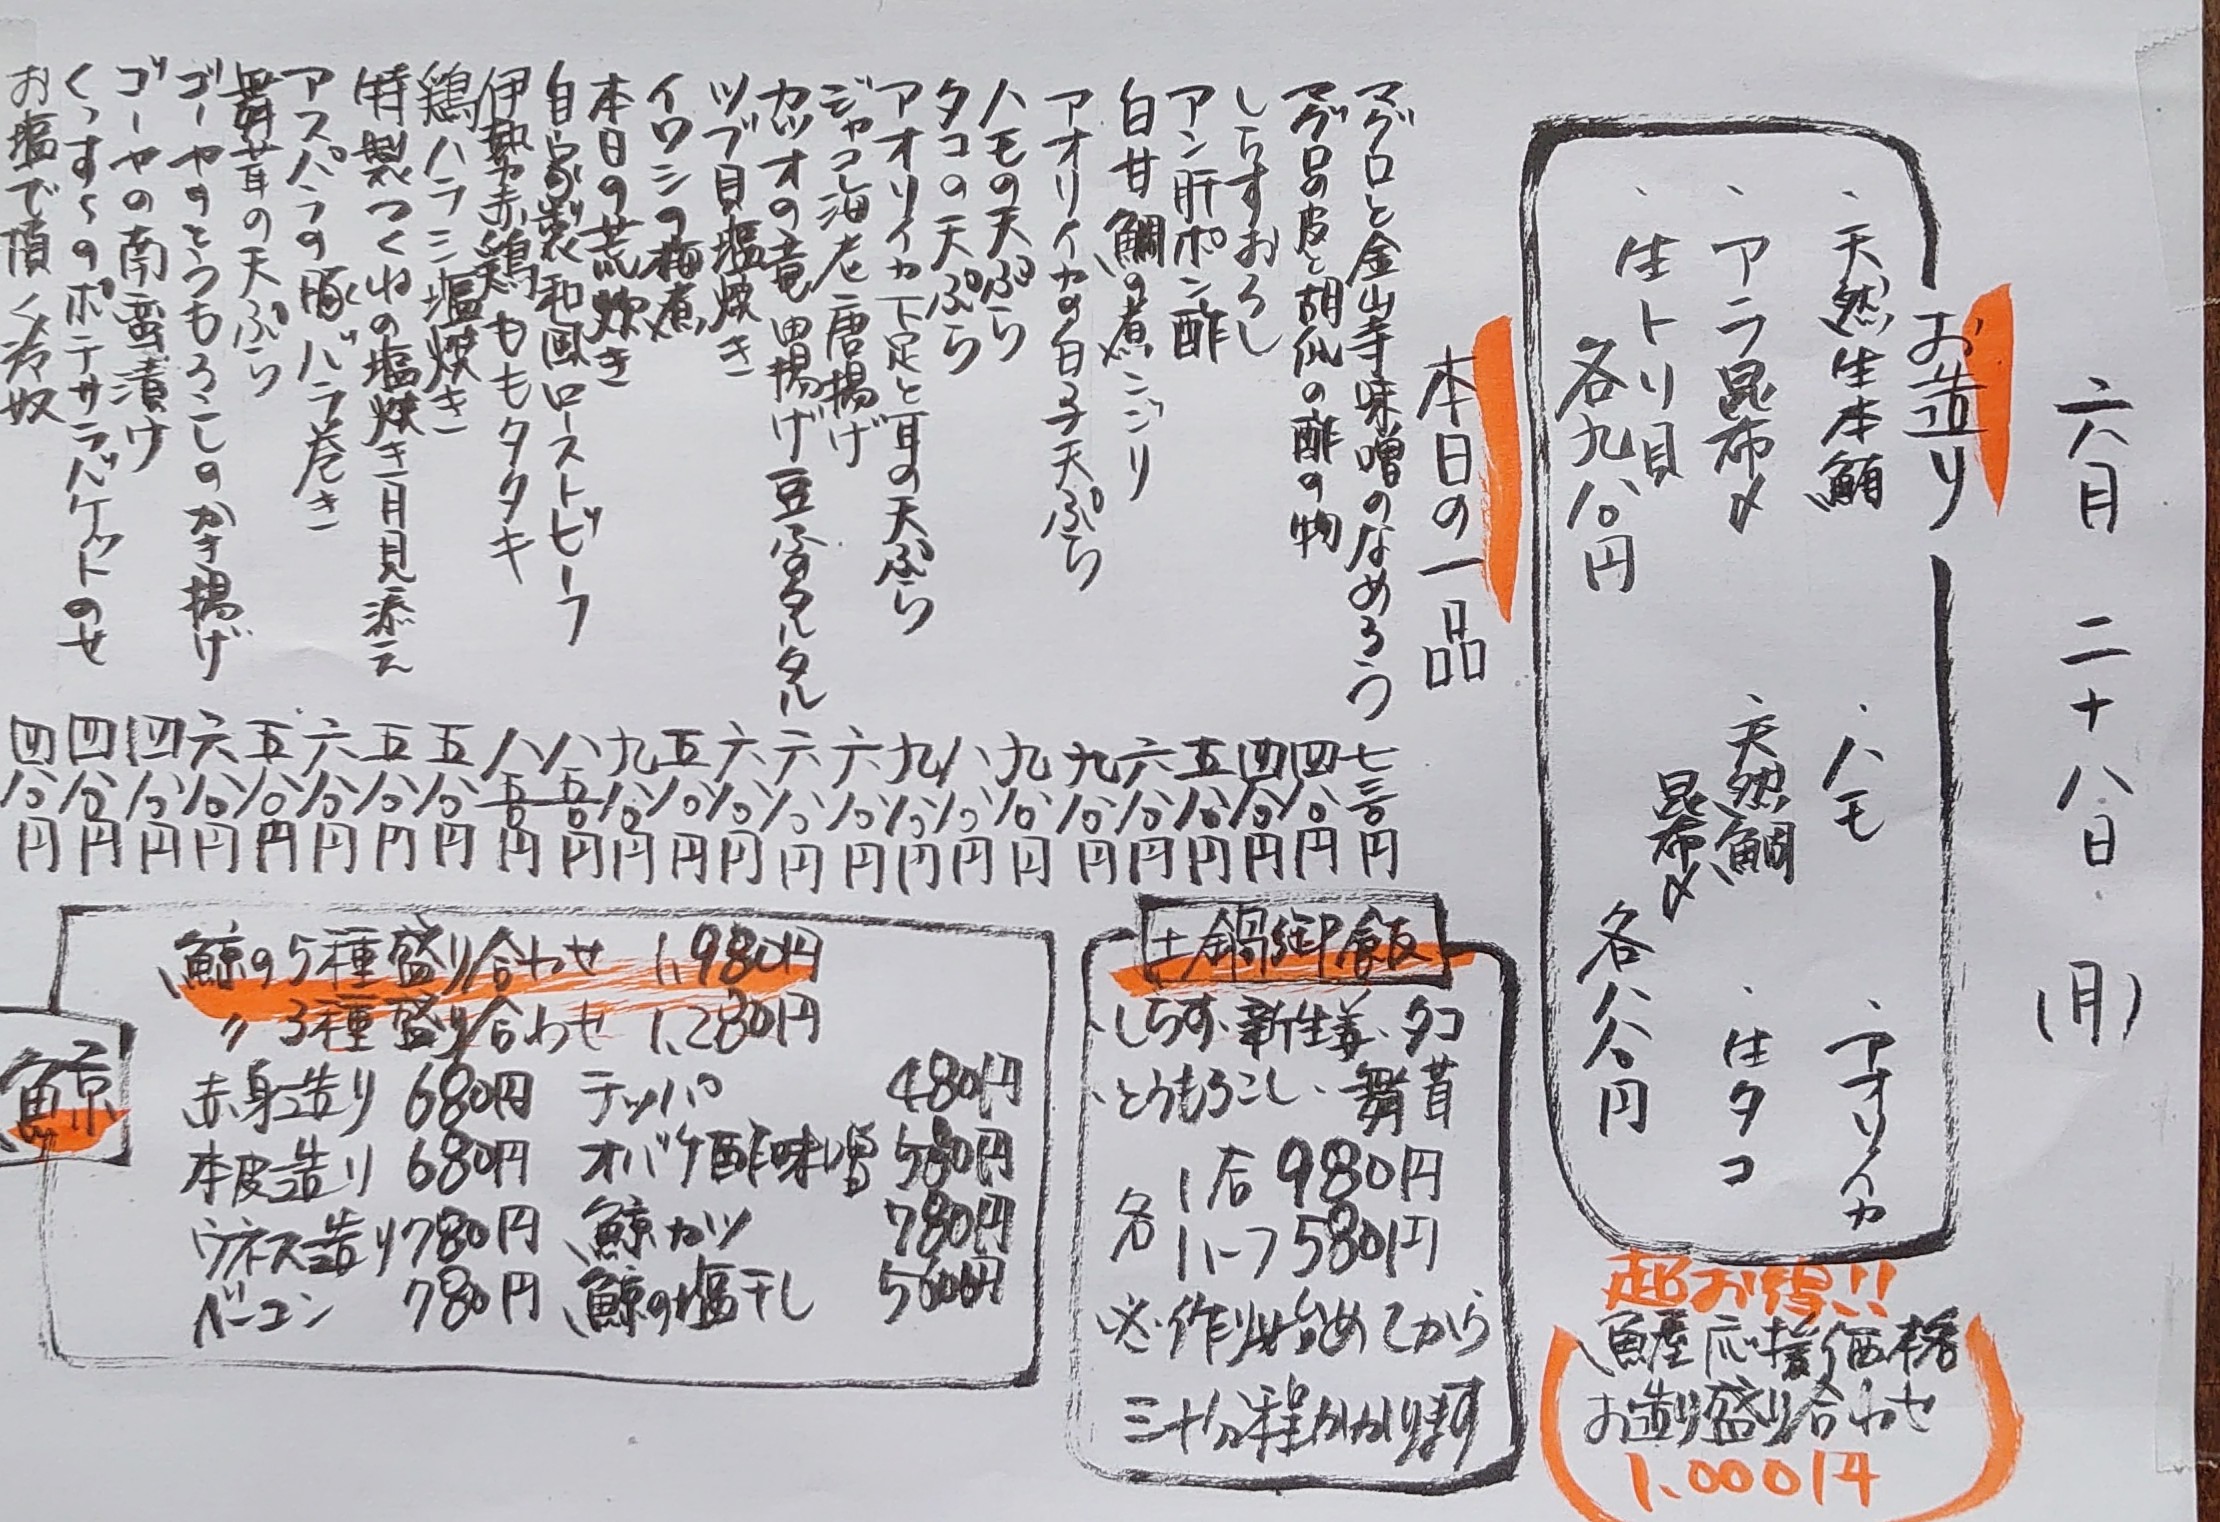 六月二十八日(月)
お造り
・天然生本鮪
・ハモ
・アオリイカ
・アラ昆布〆
・天然鯛
昆布〆
・生タコ
・生トリ貝
各九八〇円
各八八〇円
超お得!!
魚屋応援価格
お造り盛り合わせ
1,000円
本日の一品
マグロと金山寺味噌のなめろう 七三〇円
マグロの皮と胡瓜の酢の物 四八〇円
しらすおろし 四八〇円
アン肝ポン酢 五八〇円
白甘鯛の煮こごり 六八〇円
アオリイカの白子天ぷら 九八〇円
ハモの天ぷら 九八〇円
タコの天ぷら 八八〇円
アオリイカ下足と耳の天ぷら 九八〇円
ジャコ海老唐揚げ 六八〇円
カツオの竜田揚げ豆ふのタルタル 六八〇円
ツブ貝塩焼き 六八〇円
イワシの梅煮 五八〇円
本日の荒炊き 九八〇円
自家製和風ローストビーフ 八五〇円
伊勢赤鶏ももタタキ 八五〇円
鶏ハラミ塩焼き 五八〇円
特製つくねの塩焼き月見添え 五八〇円
アスパラの豚バラ巻き 六八〇円
舞茸の天ぷら 五八〇円
ゴーヤのとうもろこしのかき揚げ 六八〇円
ゴーヤの南蛮漬け 四八〇円
くっすんのポテサラバケットのせ 四八〇円
お塩で頂く冷奴 四八〇円
土鍋御飯
・しらす・新生姜・タコ
・とうもろこし・舞茸
各
1合 980円
ハーフ 580円
※作り始めてから
三十分程かかります
鯨
鯨の5種盛り合わせ 1,980円
〃 3種盛り合わせ 1,280円
赤身造り 680円 テッパ 480円
本皮造り 680円 オバケ酢味噌 580円
ウネス造り 780円 鯨カツ 780円
ベーコン 780円 鯨の塩干し